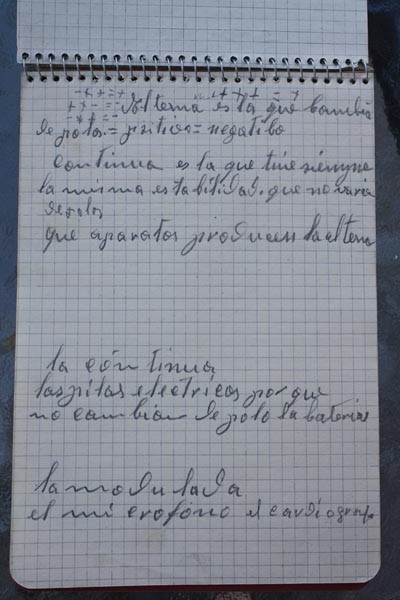 - + + = +
+ + - = - Alterna es la que cambia
de polos = pisitivo = negatibo
continua es la que tine sienpre
la misma estabilidad. que no varia
de polos
que aparatos producen la alterna
la continua
las pilas electricas por que
no cambian de polo la baterias
la modulada
el micrófono el cardiografo